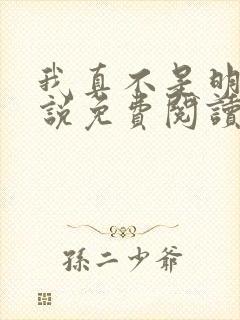 我真不是明
說免費閱讀
孫二少爺